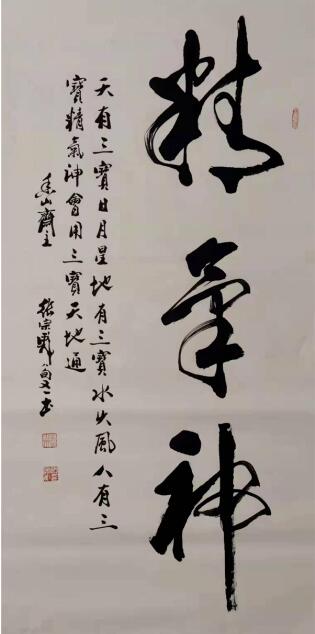 精氣神
天有三寶日月星地有三寶水火風人有三
寶精氣神會用三寶天地通
山齋主
張宗彧
書